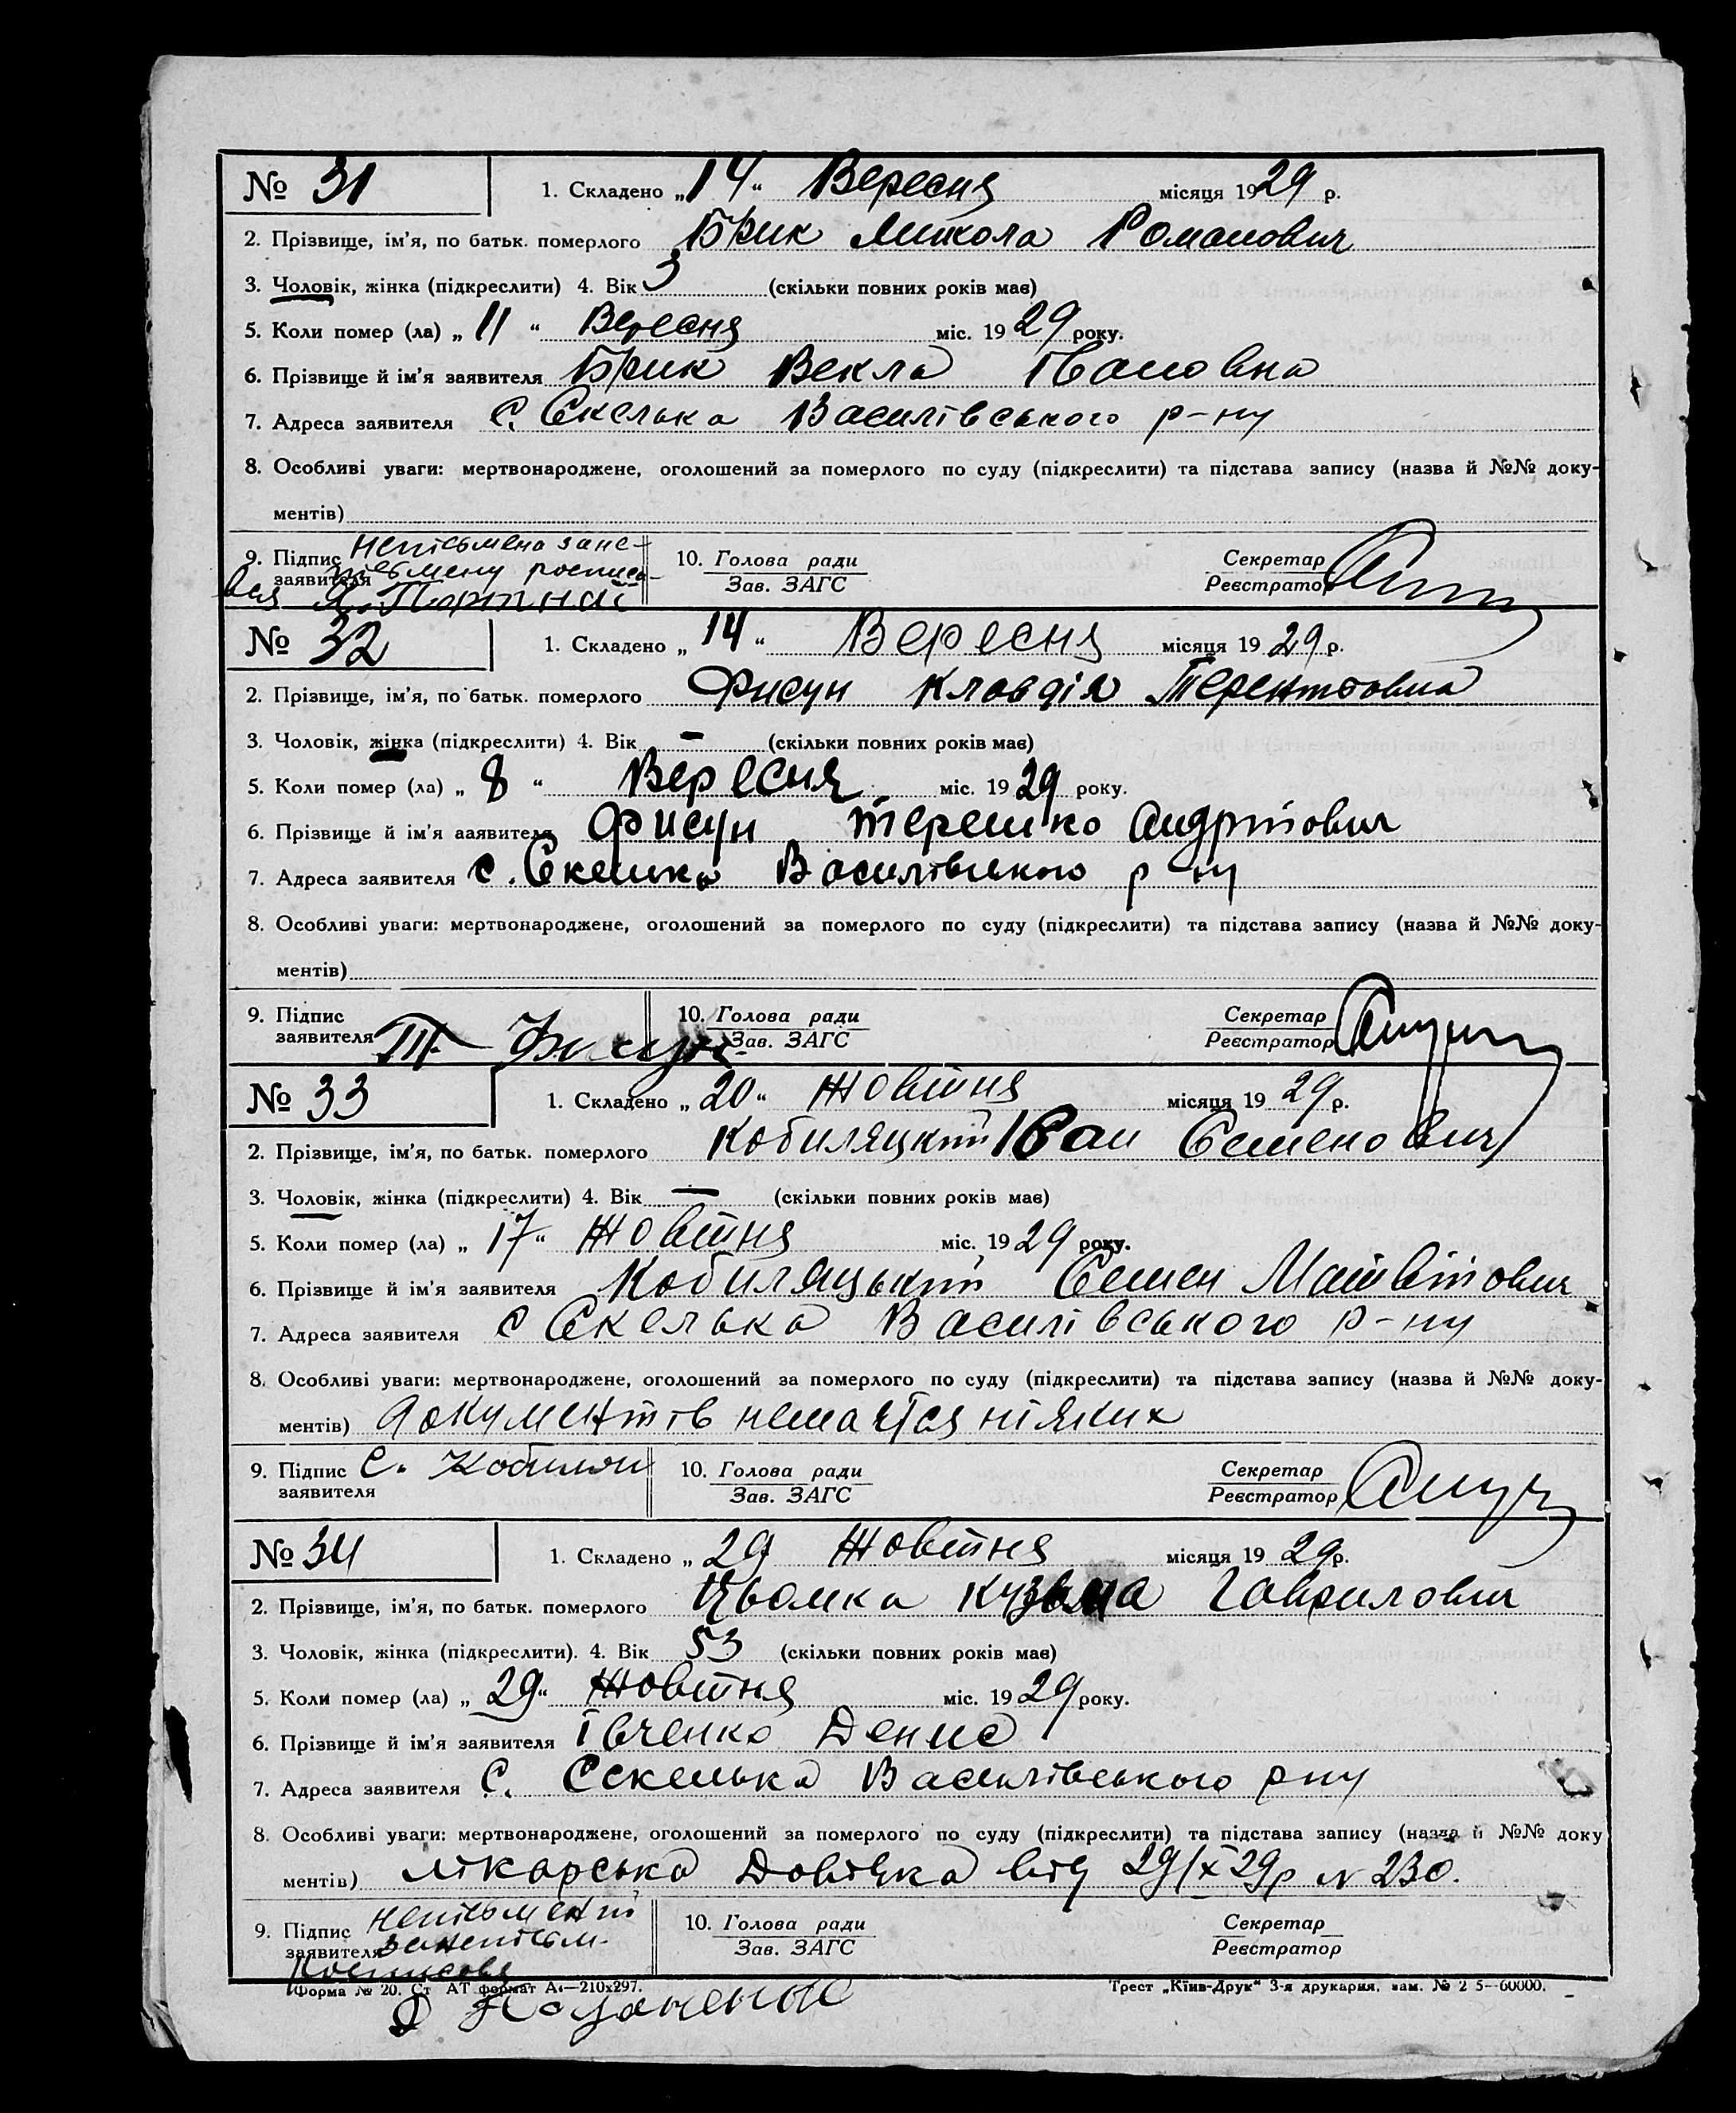 № 31 1. Складено „14“ Вересня місяця 1929 р.
2. Прізвище, ім'я, по батьк. померлого Брик Микола Романович
3. Чоловік, жінка (підкреслити) 4. Вік 3 (скільки повних років має)
5. Коли помер (ла) „11“ Вересня міс. 1929 року.
6. Прізвище й ім'я заявителя Брик Векла Івановна
7. Адреса заявителя С. Скелька Василівського р-ну
8. Особливі уваги: мертвонароджене, оголошений за померлого по суду (підкреслити) та підстава запису (назва й №№ доку-
ментів)
9. Підпис заявителя неписьмена за не- 10. Голова ради Секретар
письмену росписа- Зав. ЗАГС Реєстратор
вся
№ 32 1. Складено „14“ Вересня місяця 1929 р.
2. Прізвище, ім'я, по батьк. померлого Фисун Клавдія Терентіовна
3. Чоловік, жінка (підкреслити) 4. Вік — (скільки повних років має)
5. Коли помер (ла) „8“ Вересня міс. 1929 року.
6. Прізвище й ім'я заявителя Фисун Терешко Андріович
7. Адреса заявителя С. Скелька Василівського р-ну
8. Особливі уваги: мертвонароджене, оголошений за померлого по суду (підкреслити) та підстава запису (назва й №№ доку-
ментів)
9. Підпис 10. Голова ради Секретар
заявителя Т. Фисун Зав. ЗАГС Реєстратор
№ 33 1. Складено „20“ Жовтня місяця 1929 р.
2. Прізвище, ім'я, по батьк. померлого Кобиляцкій Іван Семенович
3. Чоловік, жінка (підкреслити) 4. Вік — (скільки повних років має)
5. Коли помер (ла) „17“ Жовтня міс. 1929 року.
6. Прізвище й ім'я заявителя Кобиляцькій Семен Матвіїович
7. Адреса заявителя С Скелька Василівського р-ну
8. Особливі уваги: мертвонароджене, оголошений за померлого по суду (підкреслити) та підстава запису (назва й №№ доку-
ментів) документів немаєтся ніяких
9. Підпис С. 10. Голова ради Секретар
заявителя Зав. ЗАГС Реєстратор
№ 34 1. Складено „29 Жовтня місяця 1929 р.
2. Прізвище, ім'я, по батьк. померлого Цьомка Кузьма Гаврилович
3. Чоловік, жінка (підкреслити). 4. Вік 53 (скільки повних років має)
5. Коли помер (ла) „29“ Жовтня міс. 1929 року.
6. Прізвище й ім'я заявителя Івченко Денис
7. Адреса заявителя С. Скелька Василівського рну
8. Особливі уваги: мертвонароджене, оголошений за померлого по суду (підкреслити) та підстава запису (назва й №№ доку
ментів) лікарська Довідка від 29/X 29р N 230.
9. Підпис неписьмений 10. Голова ради Секретар
заявителя Зав. ЗАГС Реєстратор
Форма № 20. Ст АТ формат А₄—210х297. Трест „Київ-Друк“ 3-я друкарня.